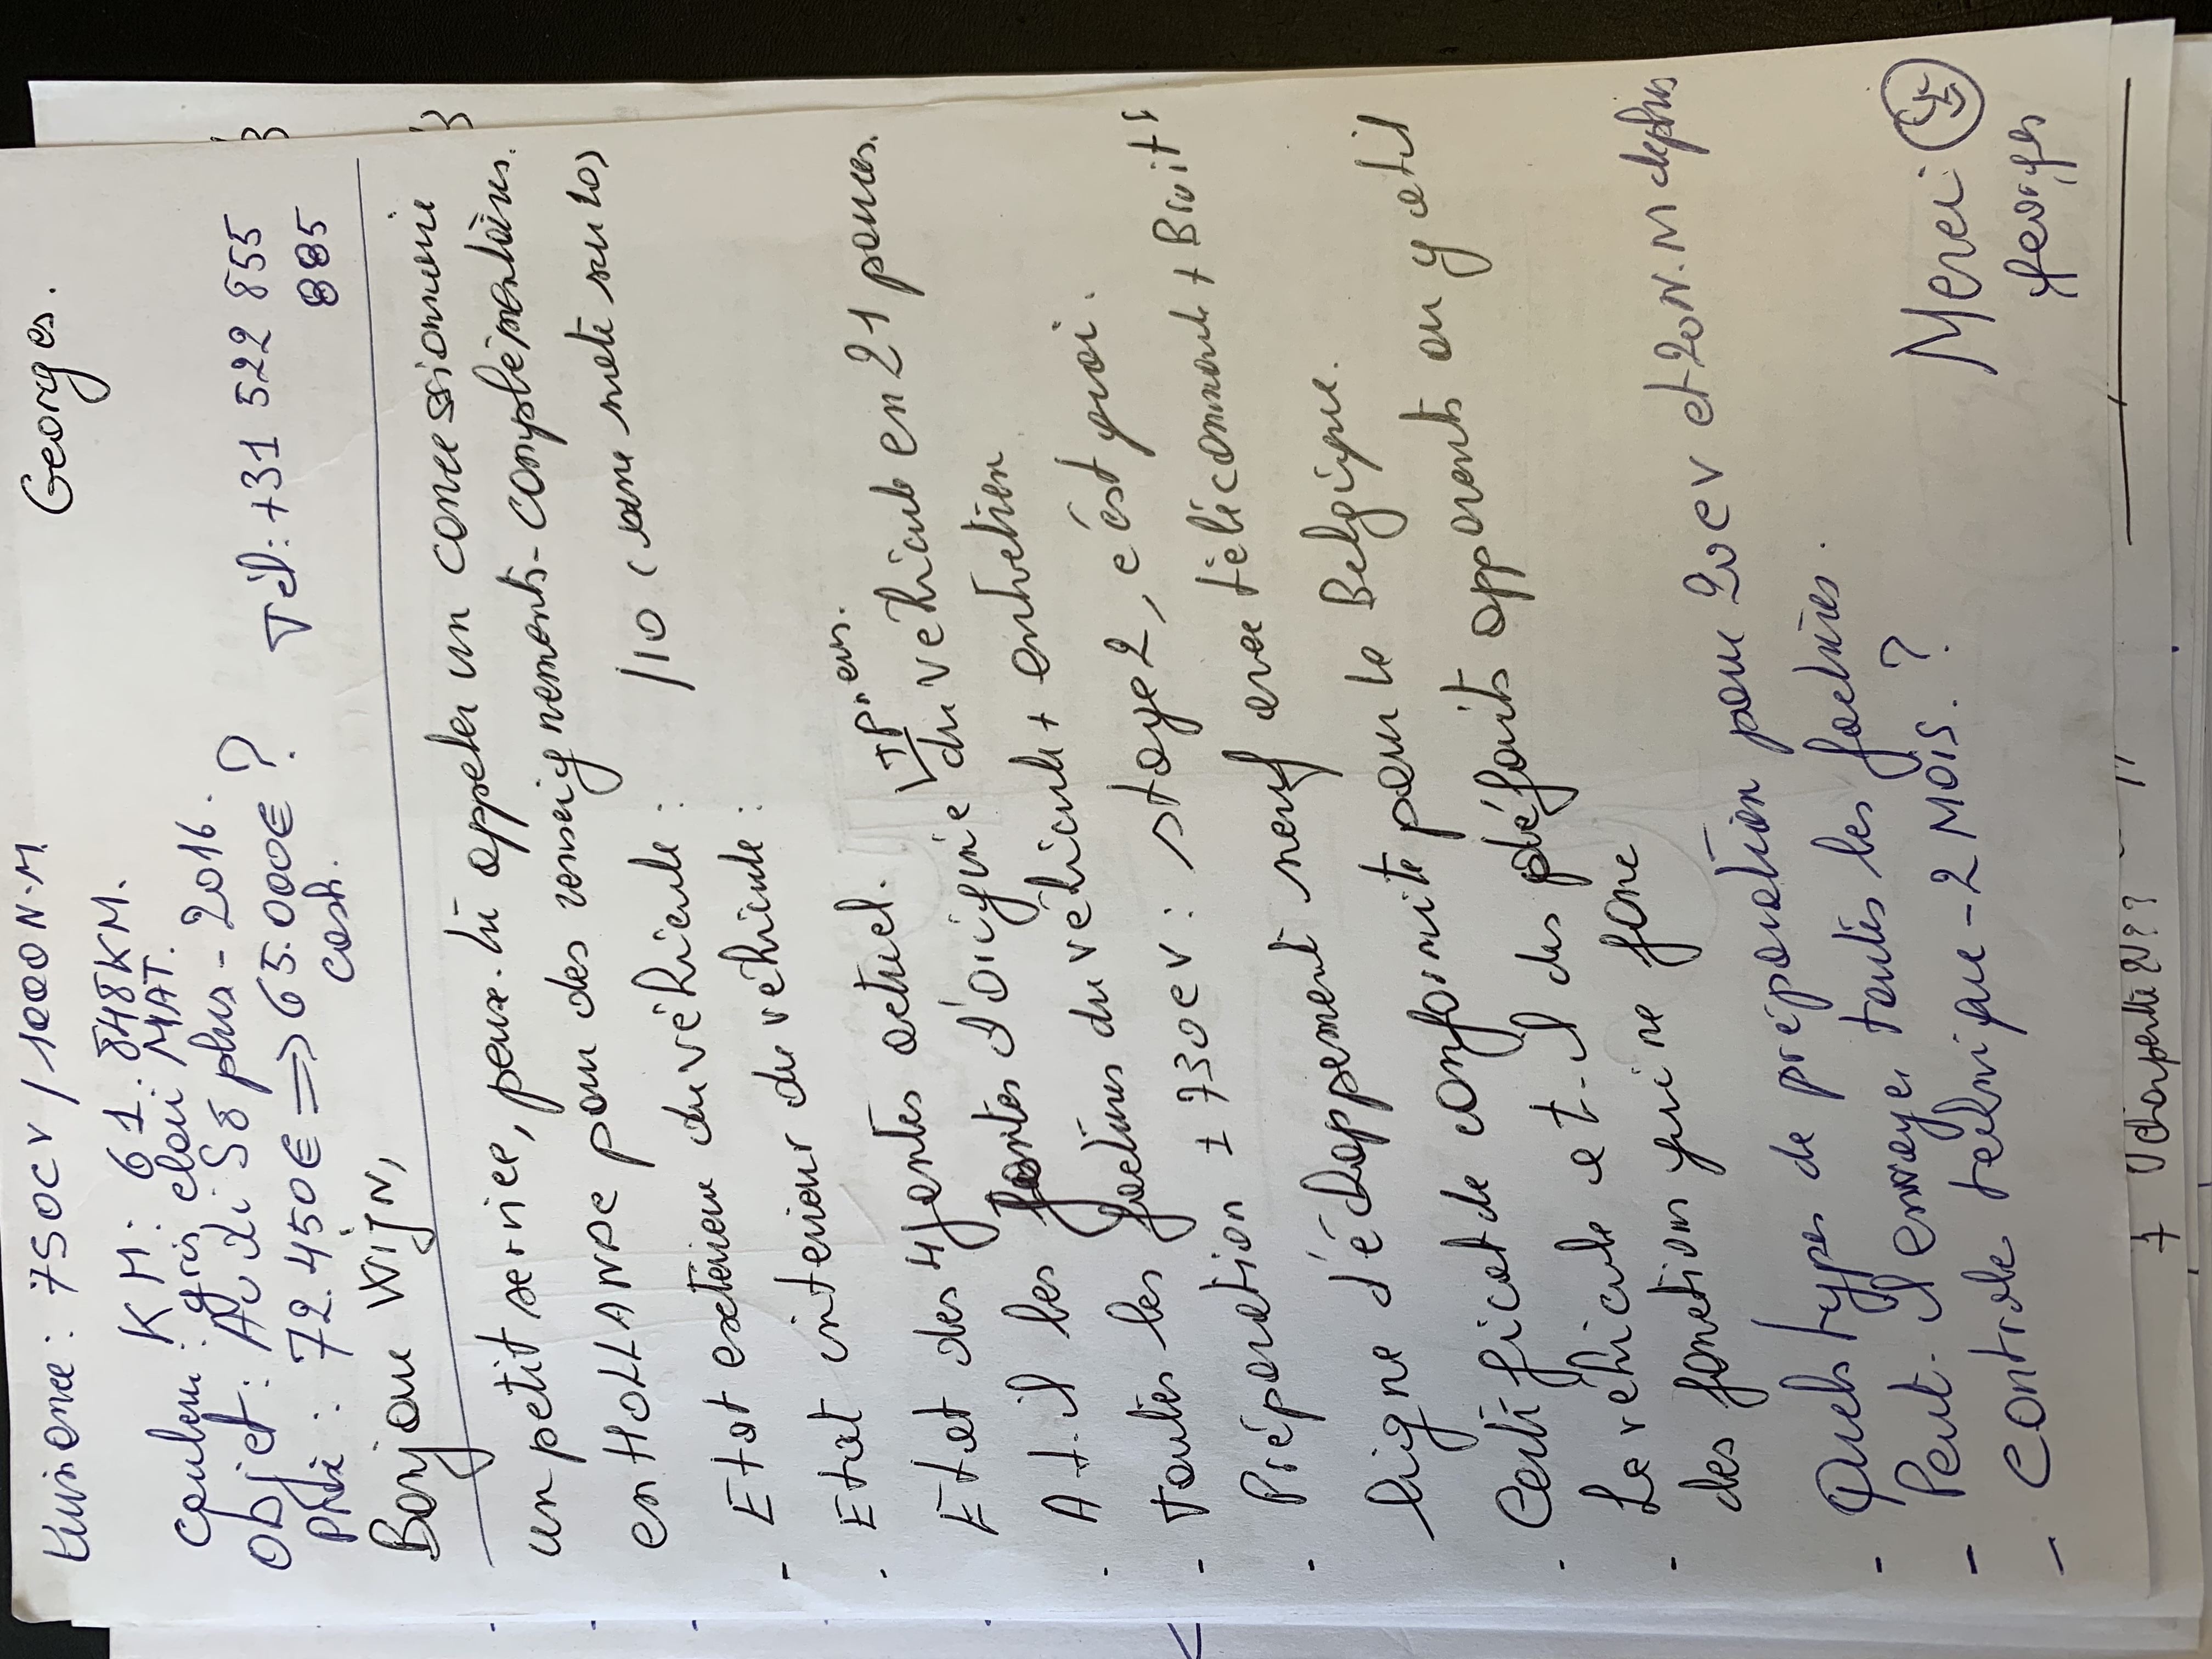 Georges.
Kuissance: 750CV / 1000N.M
KM: 61.848KM.
Couleur: gris clair MAT.
Objet: Audi S8 plus - 2016.
Prix: 72.450€ => 65.000€ ?
cash.
Tél: +31 522 855
885
Bonjour WIJN,
un petit service, peux-tu appeler un concessionnaire
en HOLLANDE pour des renseignements-complémentaires.
- Etat extérieur du véhicule: /10 (une note sur 10)
- Etat intérieur du véhicule:
Etat des 4 jantes actuel.
A t-il les jantes d'origine du véhicule en 21 pouces.
- Toutes les factures du véhicule + entretien
- Préparation ± 730cv: stage 2, c'est quoi.
ligne d'échappement neuf avec télécommande + Bruit
- Certificat de conformité pour la Belgique.
- Le véhicule a t-il des défauts apparents ou y a til
des fonctions qui ne fonc
- Quels types de préparation pour 200cv et 200N.M de plus
- Peut-il envoyer toutes les factures.
- Controle technique - 2 MOIS. ?
Merci
Georges
+ Charpente 2V??